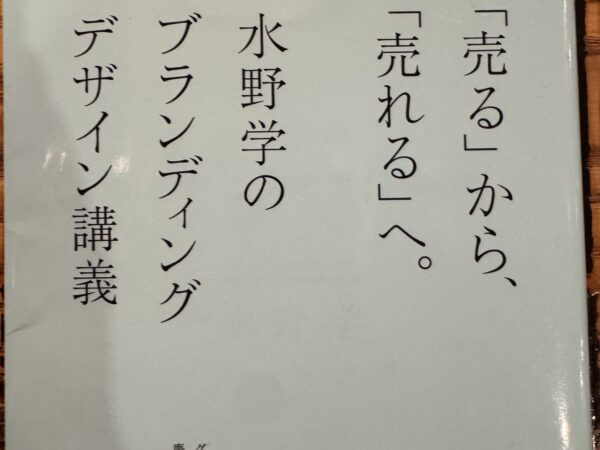 「売る」から、
「売れる」へ。
水野学の
ブランディング
デザイン講義